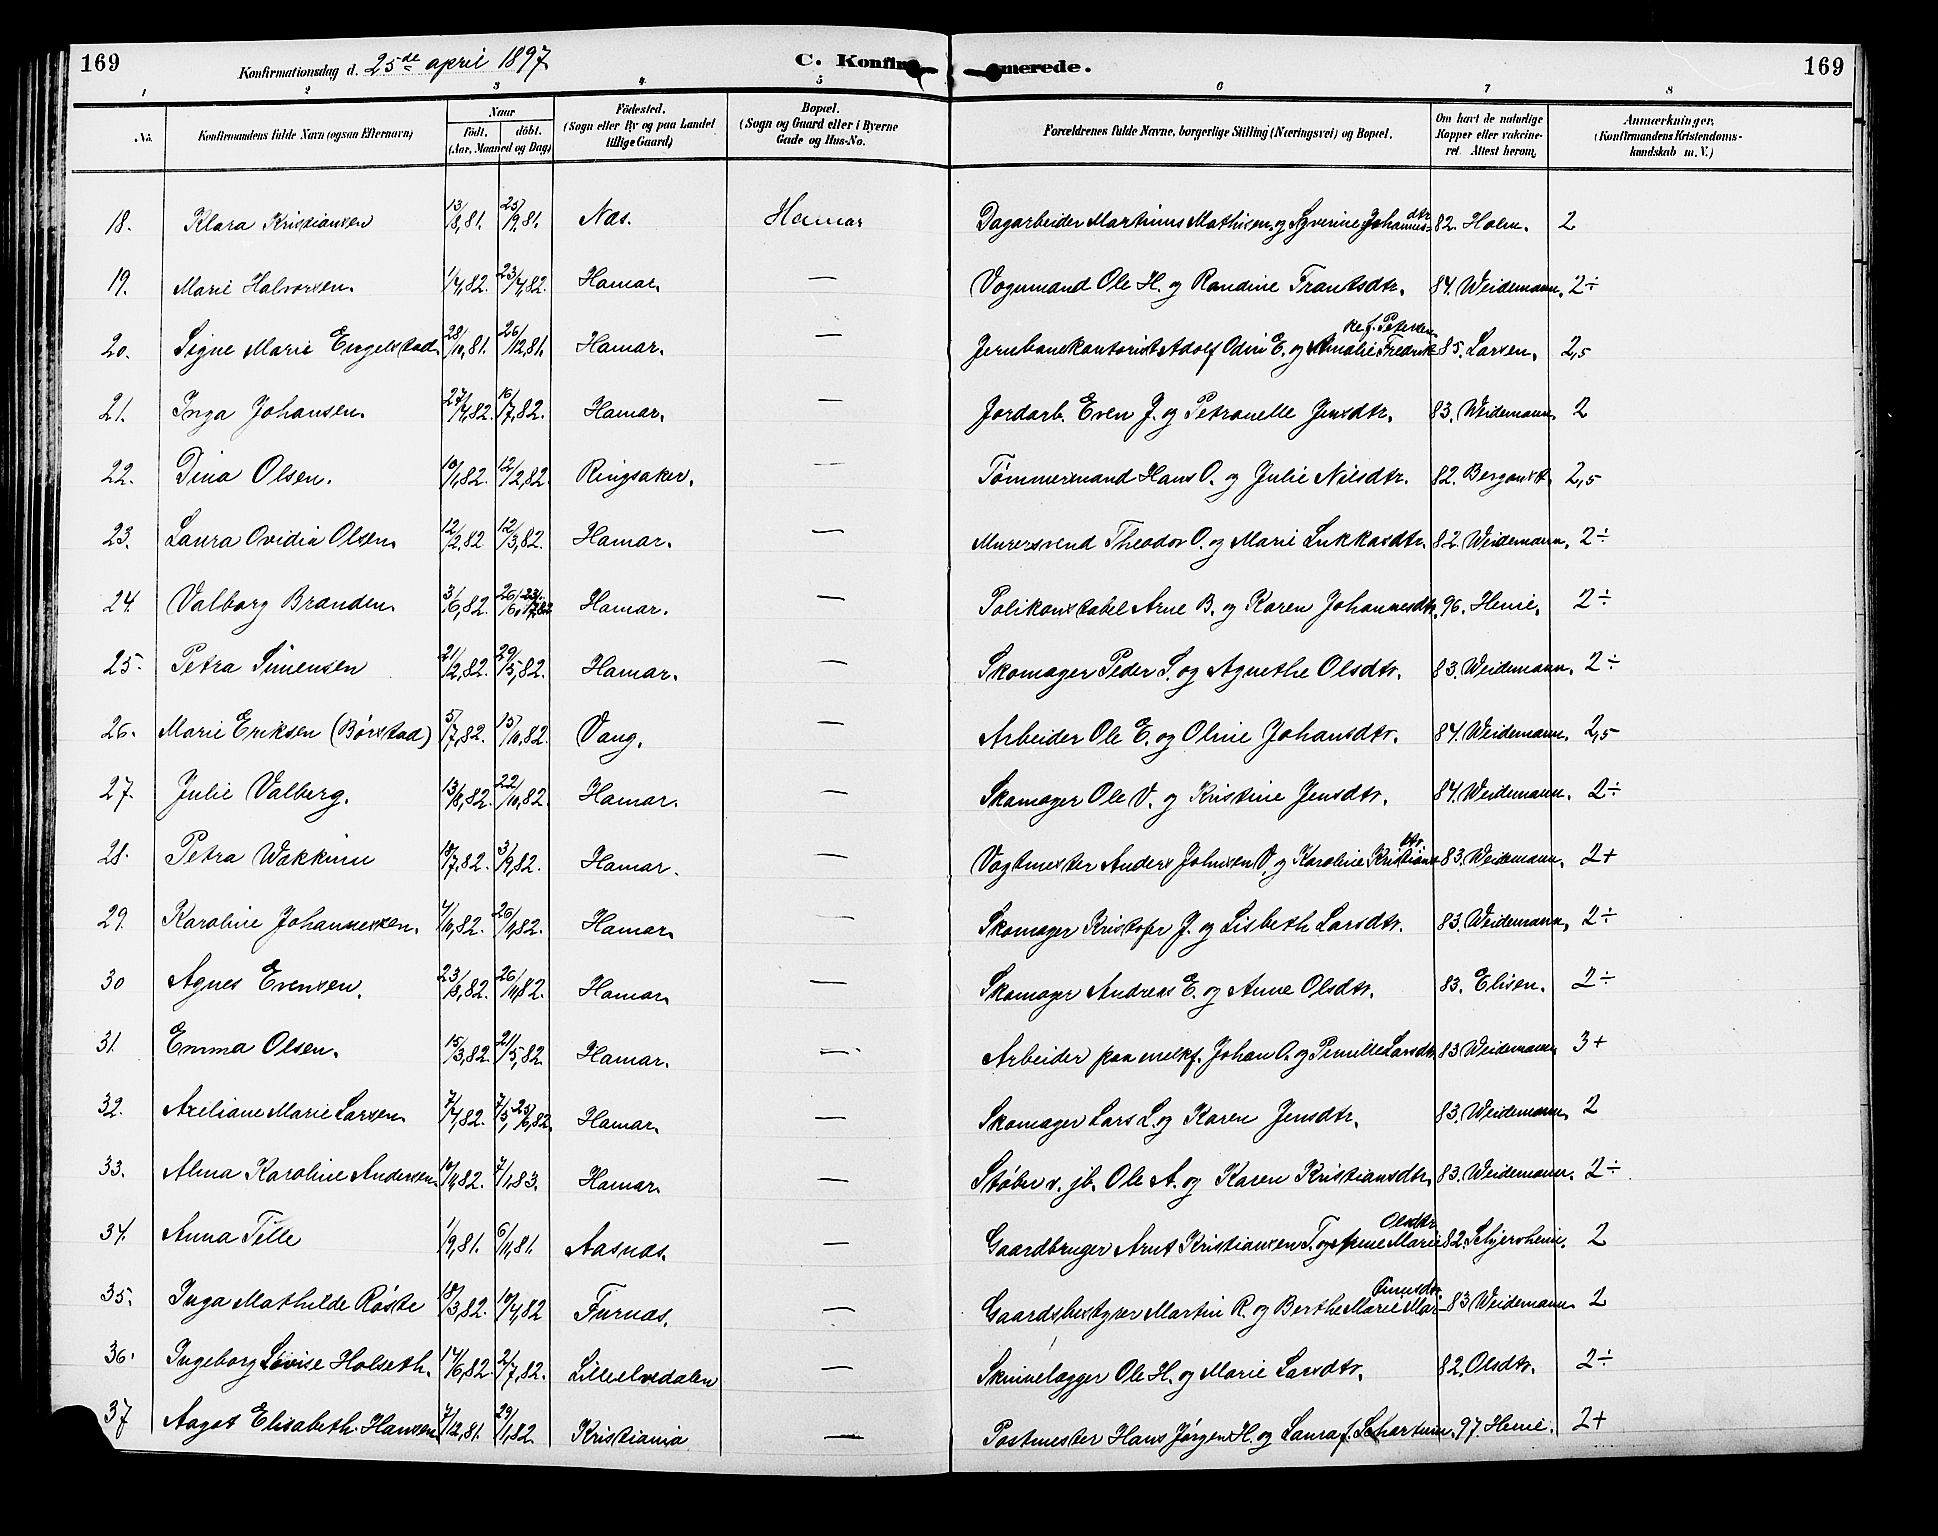 169
Konfirmationsdag d. 25de april 1897
C. Konfirmerede.
169
1 2 3 4 5 6 7 8
No.
Konfirmandens fulde Navn (ogsaa Efternavn)
Naar
födt. döbt.
(Aar, Maaned og Dag)
Födested.
(Sogn eller By og paa Landet
tillige Gaard)
Bopæl.
(Sogn og Gaard eller i Byerne
Gade og Hus-No.
Forældrenes fulde Navne, borgerlige Stilling (Næringsvei) og Bopæl.
Om havt de naturlige
Kopper eller vakcine-
ret. Attest herom,
Anmærkninger,
(Konfirmandens Kristendoms-
kundskab m. V.)
18. Klara Kristiansen 13/8,81. 25/9,81. Næs. Hamar Dagarbeider Martinus Mathisen og Syverine Johannesdtr 82. Holm. 2
19. Marie Halvorsen. 1/4,82. 23/4,82. Hamar. — Vognmand Ole H. og Randine Frantsdtr. 84. Weidemann. 2÷
20. Signe Marie Engelstad 28/10,81. 26/12,81. Hamar. — Jernbanekontorist Adolf Odin E. og Amalie Fredrikke f. Petersen 85. Larsen. 2,5
21. Inga Johansen. 27/4,82. 16/7,82. Hamar. — Jordarb. Even J. og Petronelle Jensdtr. 83. Weidemann. 2
22. Dina Olsen. 10/1,82. 12/2,82. Ringsaker. — Tømmermand Hans O. og Julie Nilsdtr. 82. 2,5
23. Laura Ovidia Olsen. 12/2,82 12/3,82. Hamar. — Murersvend Theodor O. og Marie Lukkasdtr. 82. Weidemann. 2÷
24. Valborg Branden. 3/6,82. Hamar. — Polikonstabel Arne B. og Karen Johannesdtr. 96. Henie. 2÷
25. Petra Simensen 21/2,82. 29/5,82. Hamar. — Skomager Peder S. og Agnethe Olsdtr. 83. Weidemann. 2÷
26. Marie Eriksen (Børstad) 5/7,82. 15/10,82. Vang. — Arbeider Ole E. og Oline Johansdtr. 84. Weidemann. 2,5
27. Julie Valberg. 13/8,82. 22/10,82. Hamar. — Skomager Ole V. og Kristine Jensdtr. 84. Weidemann. 2÷
28. Petra Wakkum 18/7,82. 3/9,82. Hamar. — Vagtmester Anders Johnsen V. og Karoline Kristiansdtr 83. Weidemann. 2+
29. Karoline Johannessen. 4/10,82. 26/11,82. Hamar. — Skomager Kristofer J. og Lisbeth Larsdtr. 83. Weidemann. 2÷
30 Agnes Evensen. 23/8,82. 26/11,82. Hamar. — Skomager Andreas E. og Anne Olsdtr. 83. Elisen. 2÷
31. Emma Olsen. 15/3,82. 21/5,82. Hamar. — Arbeider paa melkf. Johan O. og Pernille Larsdtr. 83 Weidemann 3+
32. Axeliane Marie Larsen 7/4,82. 7/5, 25/6,82. Hamar. — Skomager Lars L. og Karen Jensdtr. 83. Weidemann. 2
33. Alma Karoline Andersen. 10/11,82. 7/1,83. Hamar. — Støber v. jb. Ole A. og Karen Kristiansdtr. 83. Weidemann. 2÷
34. Anna Tille 1/9,81. 6/11,81. Aasnæs. — Gaardbruger Arnt Kristiansen T. og Anne Marie Olsdtr 82. 2
35. Inga Mathilde Røste 18/3,82. 10/4,82 Furnæs. — Gaardsbestyrer Martin R. og Berthe Marie 83 Weidemann. 2
36. Ingeborg Lovise Holseth. 14/6,82. 2/7,82. Lilleelvedalen — Skinnelægger Ole H. og Marie Larsdtr. 82. Olsdtr. 2÷
37 Aagot Elisabeth Hansen 7/12,81. 29/1,82. Kristiania — Postmester Hans Jørgen H. og Laura f. Schartum. 97. Henie. 2+